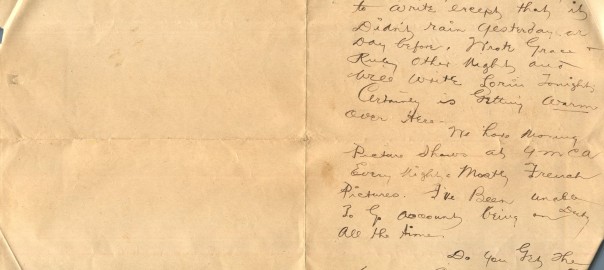 to write except that it
Didn't rain yesterday or
Day before. Wrote Grace +
Ruby Other Night and
Will Write Lorin Tonight
Certainly is Getting Warm
Over Here-
We have Moving
Picture Shows at YMCA
Every Night. Mostly French
Pictures. I've Been unable
To Go account being on Duty
All the time.
Do You Get The